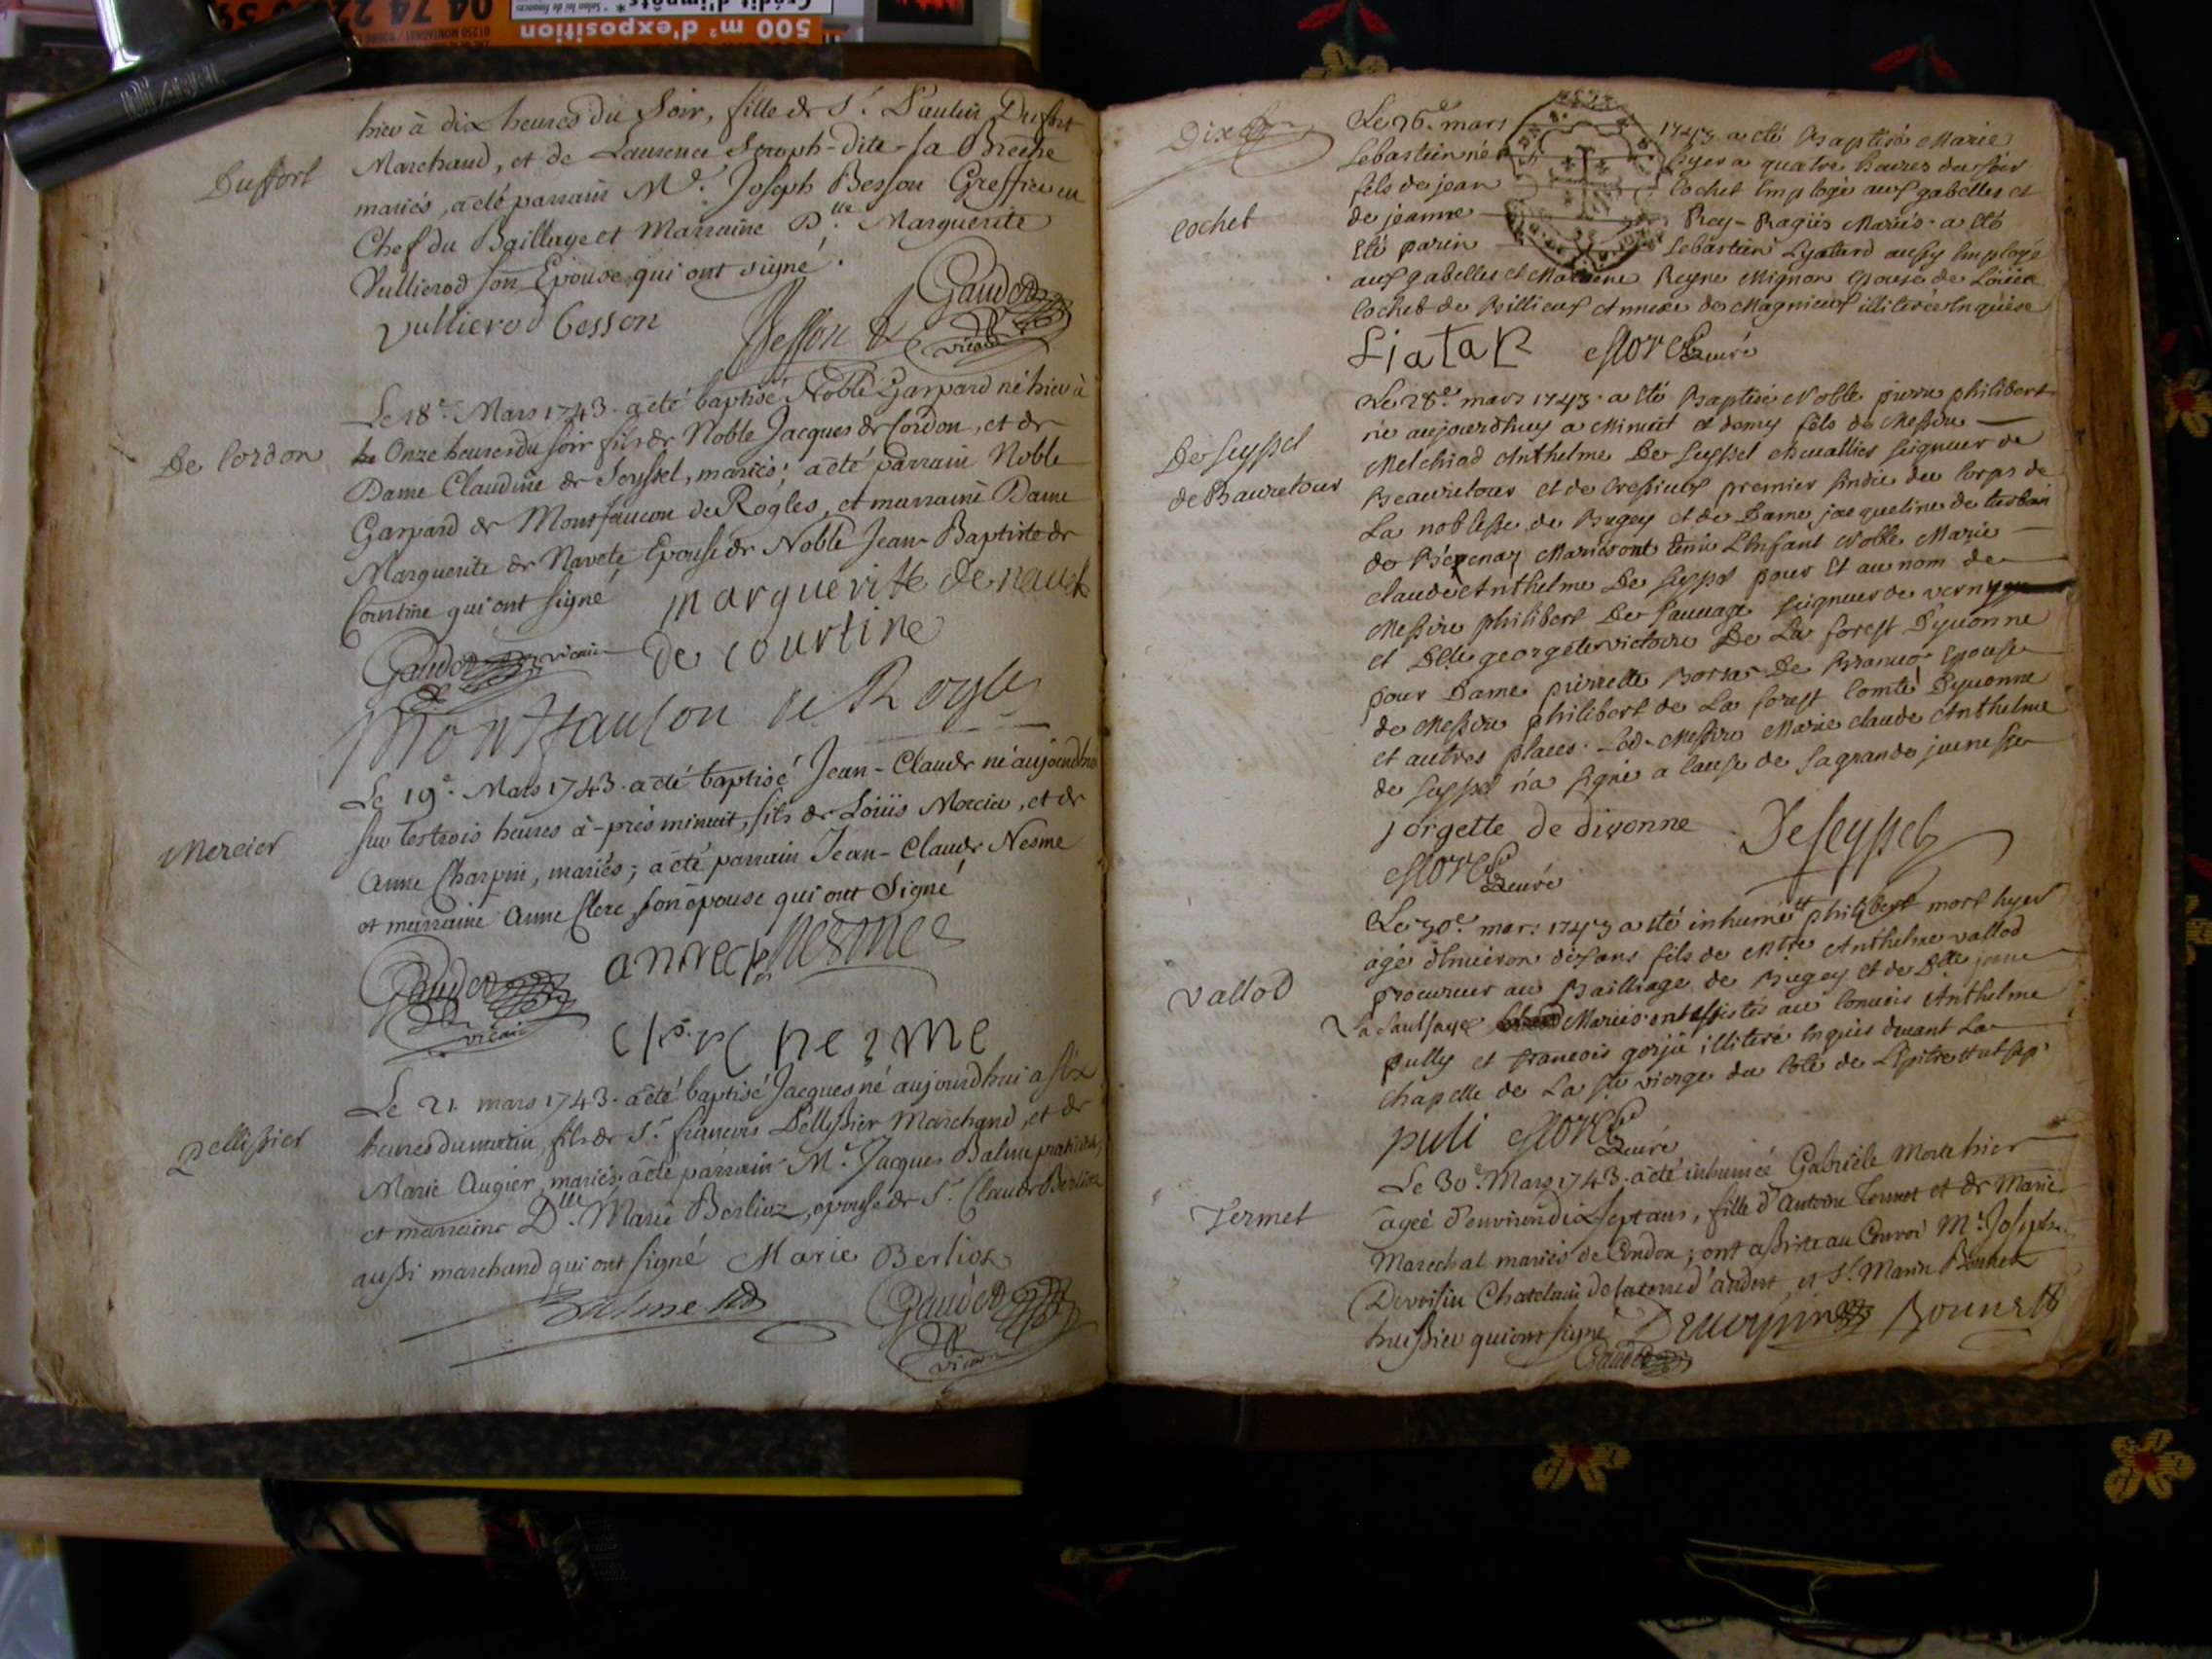 500 m² d'exposition
hier à dix heures du soir, fille de Sr. Paulin Duffort
Duffort
Marchand, et de Laurence Joseph-dite-la Brèche
mariés, a été parrain Me. Joseph Besson Greffier en
Chef du Bailliage et Marraine Dlle. Marguerite
Vullierod son Epouse qui ont signé.
vullierod besson
Besson
Gaudet
vicaire
Le 18e. Mars 1743. a été baptisé Noble Gaspard né hier à
De Cordon
Onze heures du soir fils de Noble Jacques de Cordon, et de
Dame Claudine de Seyssel, mariés; a été parrain Noble
Gaspard de Montfaucon de Rogles, et marraine Dame
Marguerite de Navete Epouse de Noble Jean-Baptiste de
Courtine qui ont signé
marguerite de navete
de courtine
Gaudet vicaire
Montfaucon de Rogles
Le 19e. Mars 1743. a été baptisé Jean-Claude né aujourdhui
Mercier
sur les trois heures à-près minuit, fils de Loüis Mercier, et de
Anne Charpin, mariés; a été parrain Jean-Claude Nesme
et marraine Anne Clerc, son épouse qui ont Signé
Gaudet
vicaire
nesme
nesme
Le 21. mars 1743. a été baptisé Jacques né aujourd'hui a six
Pellissier
heures du matin, fils de Sr. francois Pellissier Marchand, et de
Marie Augier, mariés. a été parrain Mr. Jacques Balme praticien,
et marraine Dlle. Marie Berlioz, epouse de Sr. Claude Berlioz
aussi marchand qui ont signé Marie Berlioz
Balme
Gaudet
vicaire
Dix
Le 26e. mars 1743. a été Baptisé Marie
Sebastien né hyer a quatre heures du soir
fils de jean Cochet Employé aux gabelles et
Cochet
de jeanne Rey-Ragüis Mariés. a été
Eté parin Sebastien Lyatard aussy Employé
aux gabelles et Mareine Reyne Mignon Epouse de
Cochet de Billieux Annexe de Magnieux illiterée Enquise
Liatar
curé
Le 28e. mars 1743. a été Baptisé Noble pierre philibert
né aujourdhuy a Minuit et demy fils de Messire
De Seyssel
de Beauretour
Melchiad Anthelme De Seyssel chevallier seigneur de
Beauretour et de Cressieux premier sindic du Corps de
La noblesse de Bugey et de Dame jacqueline de
Mariés ont tenu L'Enfant Noble Marie
claude Anthelme De Seyssel pour Et au nom de
Messire philibert De Sauuage seigneur de
et Dlle georgete victoire De La forest Dyuonne
pour Dame pierrette
de Messire philibert de La forest Comte Dyuonne
et autres places. Led. Messire Marie claude Anthelme
de Seyssel n'a signé a Cause de sa grande jeunesse
jorgette de divonne
De Seyssel
curé
Le 30e. mars 1743 a été inhumé philibert mort hyer
agé d'Enuiron dix ans fils de Mtre Anthelme vallod
Vallod
procureur au Bailliage de Bugey et de Dlle jeane
La Saulsaye Mariés ont assistés au Conuois Anthelme
pully et francois illiteré Enquis deuant La
chapelle de La Ste vierge du Coté de L'Epitre
puli
curé
Le 30e. Mars 1743. a été inhumée Gabriele Morte hier
Vermet
agée d'environ dix sept ans, fille d'Antoine Vermet et de Marie
Marechal mariés de Condon; ont assisté au Convoi Mr. Joseph
Chatelain d'andert, et Sr. Marin Bonnet
huissier qui ont signé
Bonnet
Gaudet